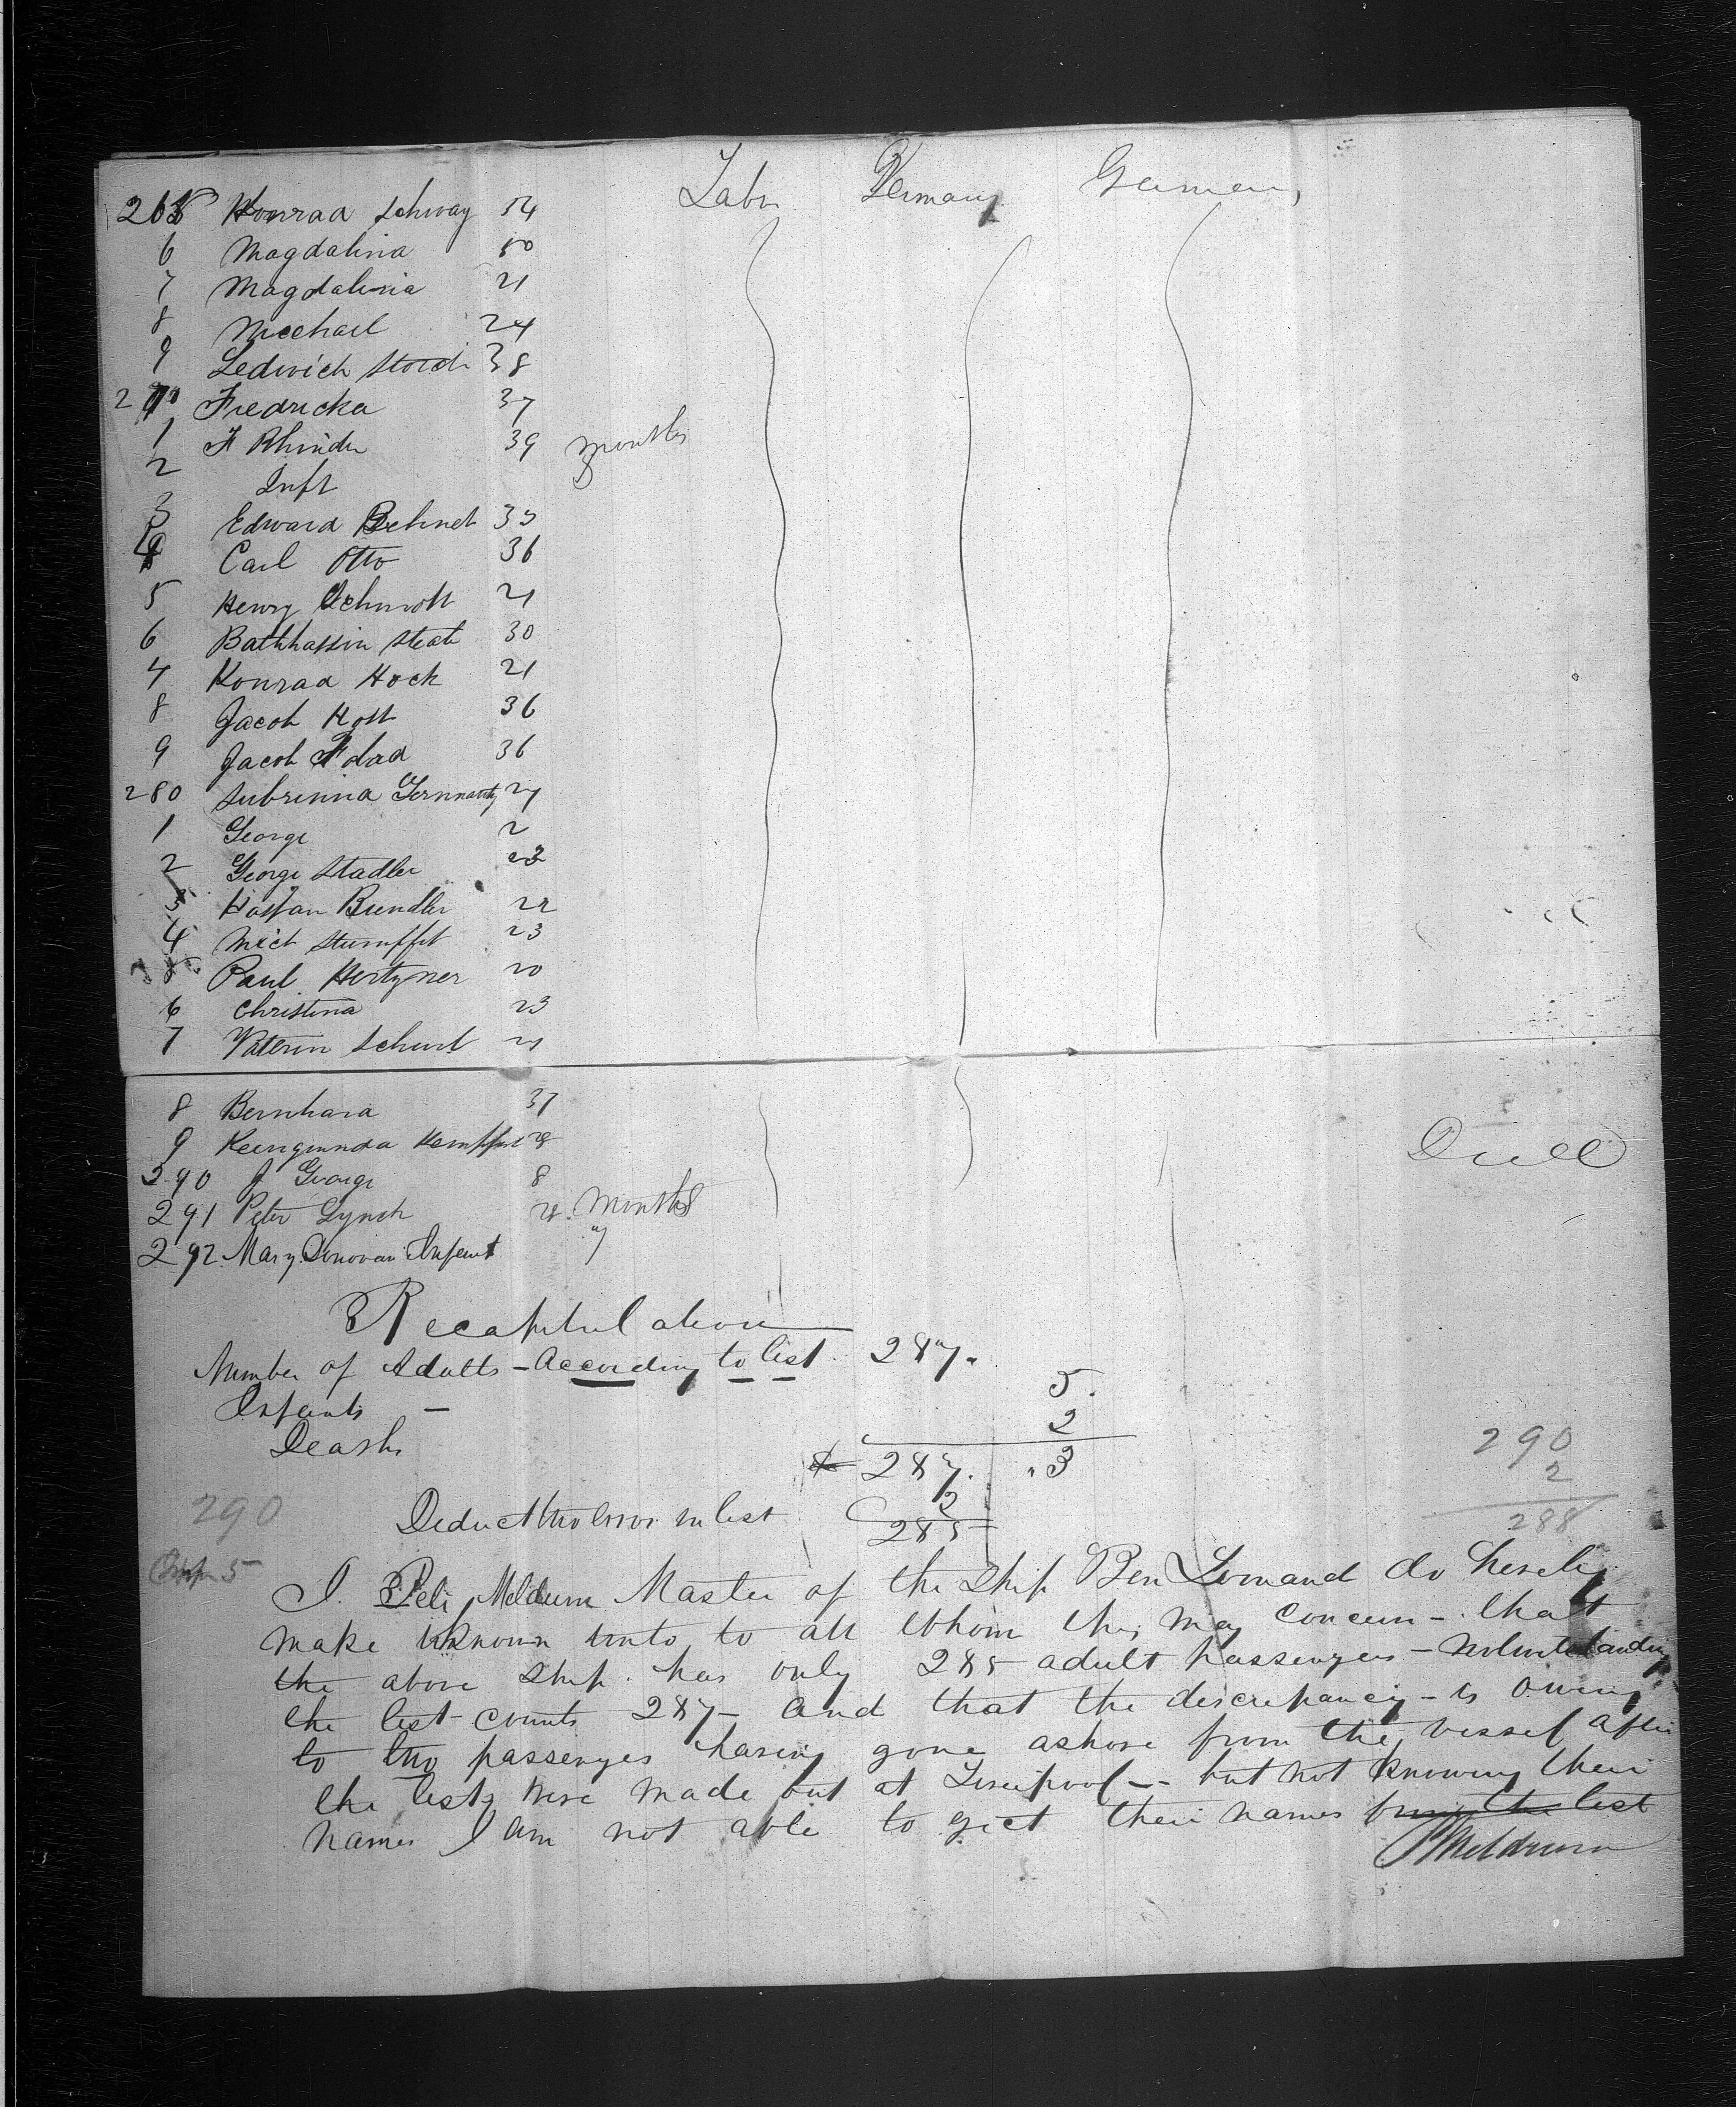 265 Konrad Schway 54 Labr Germany German,
6 Magdalina 50
7 Magdalina 21
8 Meechael 24
9 Ledwich 38
270 Fredricka 37
1 F Rhinder 39 months
2 Inft
3 Edward Behnet 35
4 Carl Otto 36
5 Henry Schmott 21
6 30
7 Konrad Hock 21
8 Jacob Kott 36
9 Jacob 36
280 Subrinna 27
1 George 2
2 George Stadler 23
3 Bundler 22
4 Mict Stumffet 23
5 Paul Hertzner 20
6 Christina 23
7 Schurt 21
8 Bernhard 37
9 Keengunda 28
290 J George 8 Died
291 Peter Lynch months
292 Mary Donovan Infant "
Recapitulation
Number of Adults - According to list. 287.
Infants - 5.
Deaths 2
287. "3
290
2
288
290
Deduct two error in list 2
285
Infts 5
I. Pet Meldrum Master of the Ship Ben Lomand do hereby
make known unto to all whom this may concern - that
the above ship has only 285 adult passengers - notwithstanding
the list counts 287 - and that the discrepancy - is owing
to two passengers having gone ashore from the vessel after
the lists were made out at Liverpool - - but not knowing their
names I am not able to get their names from the list
P Meldrum